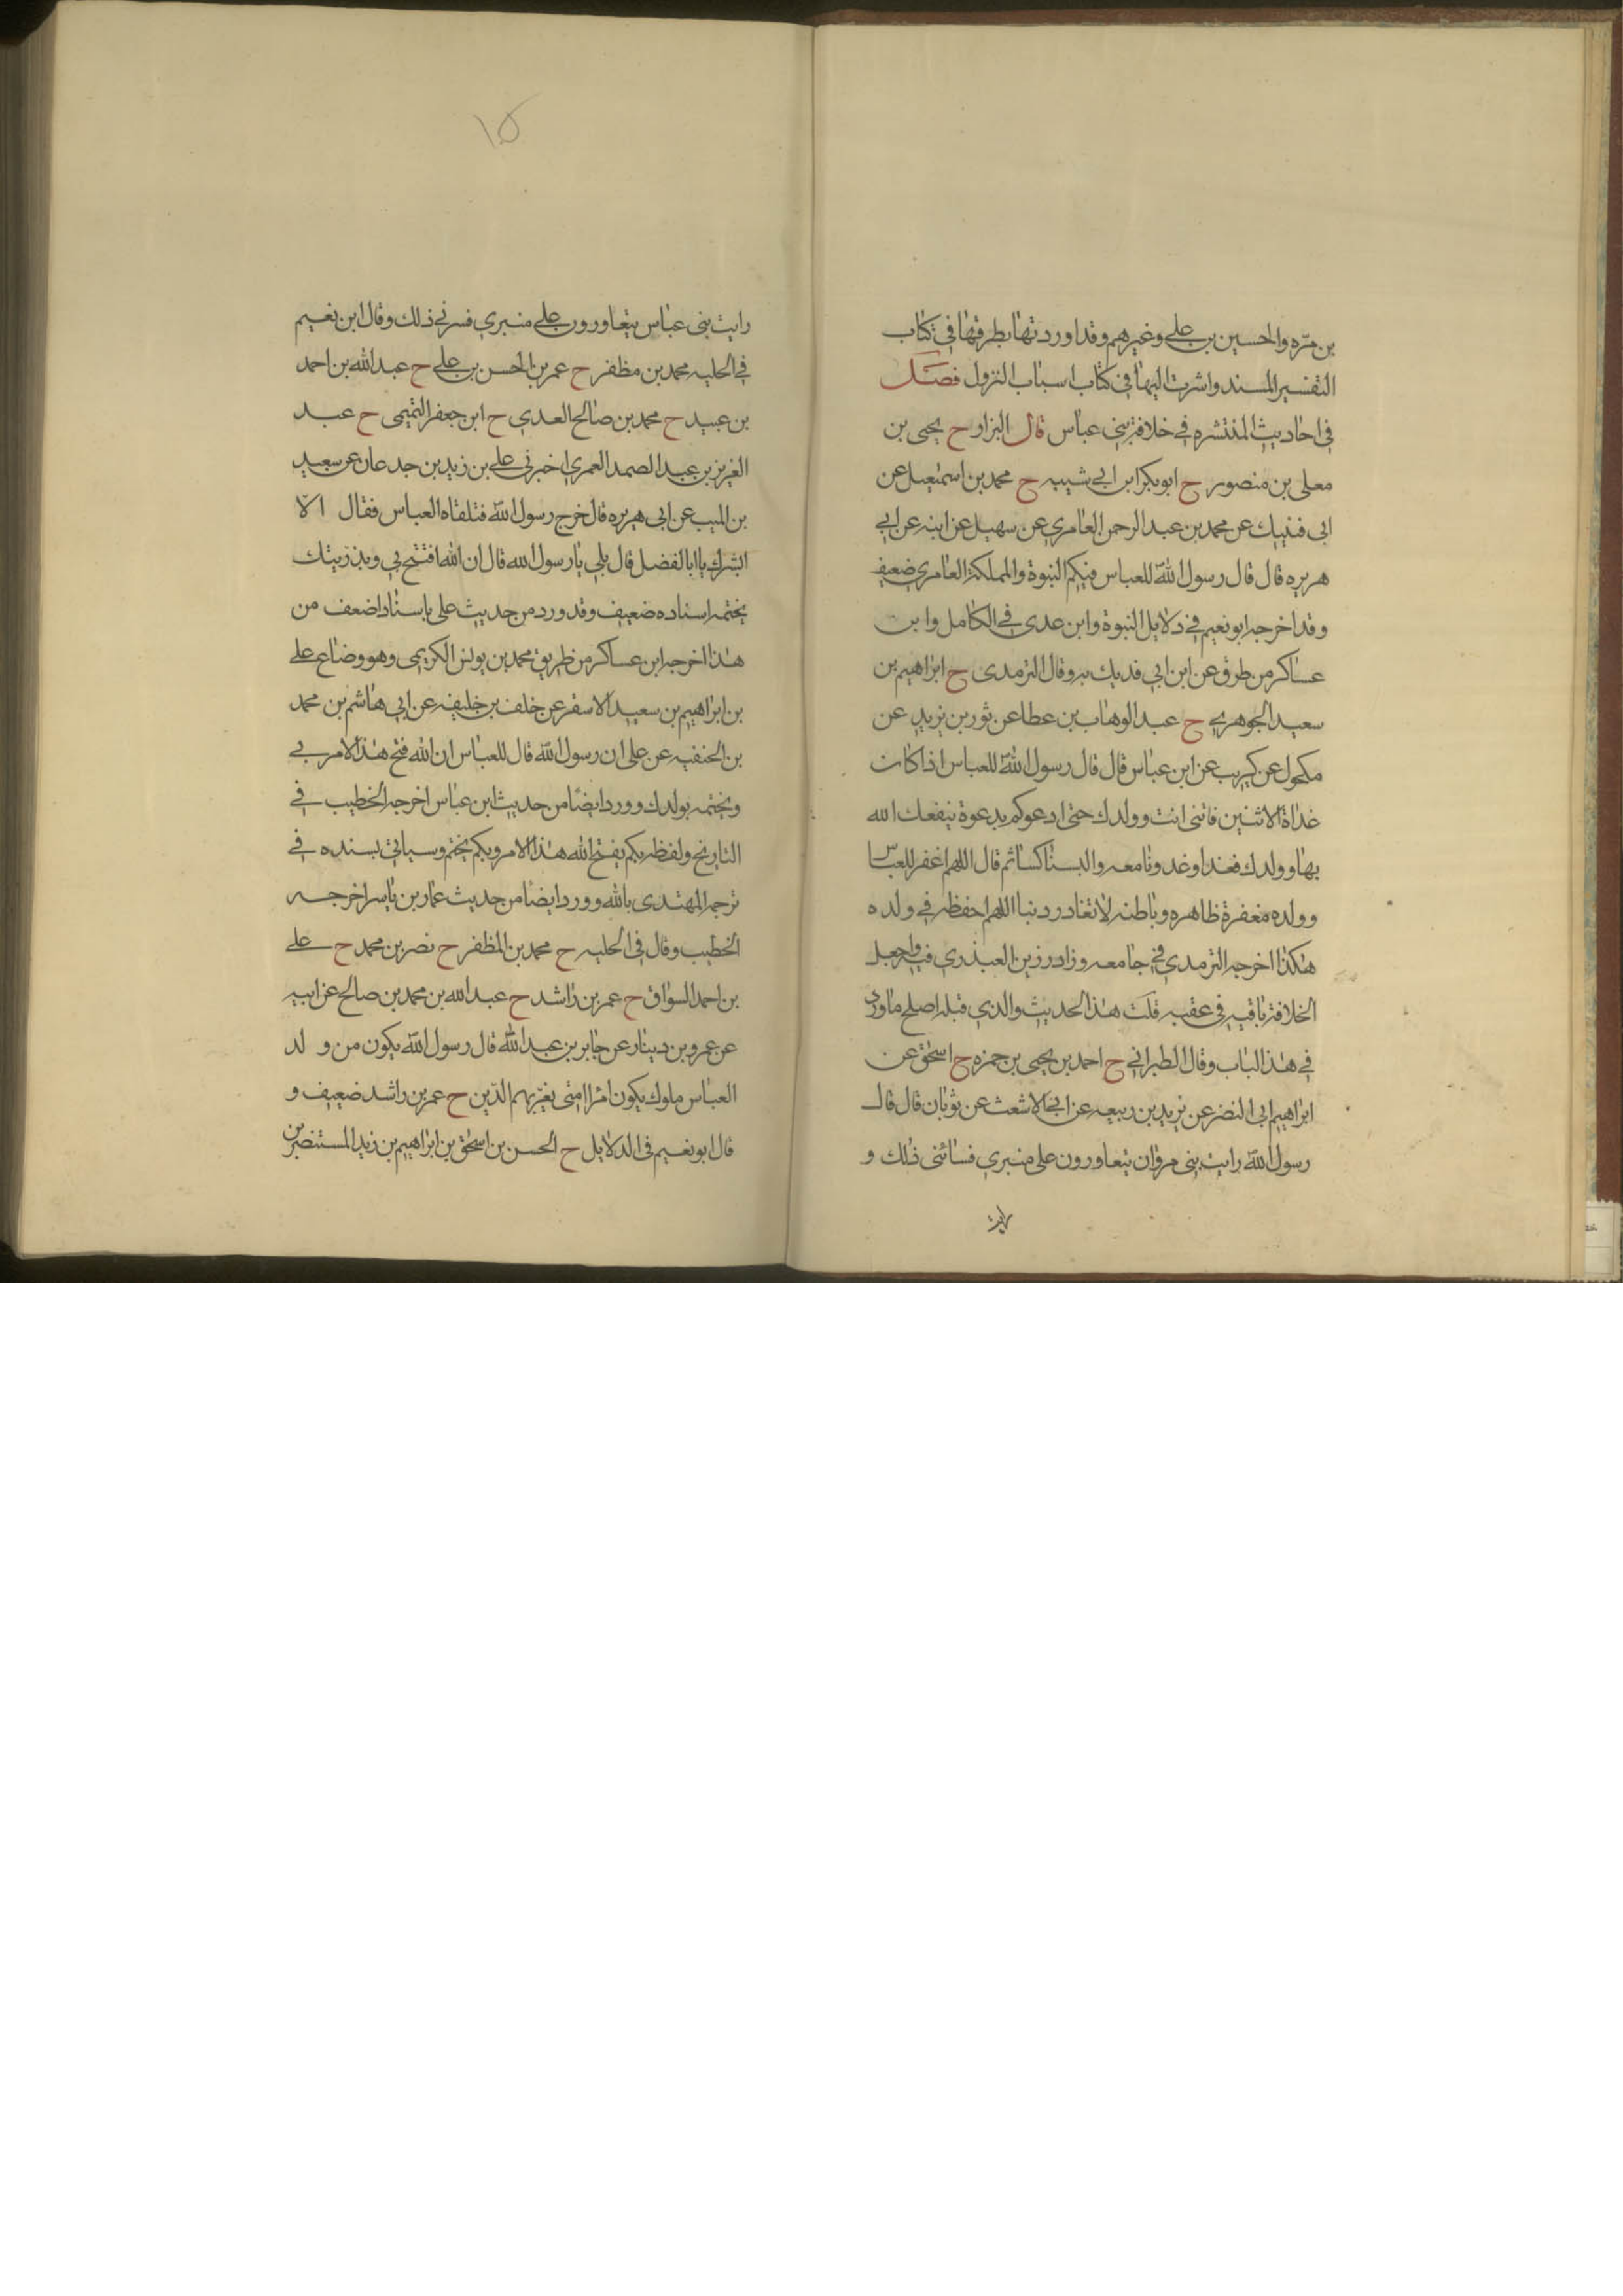 بن مرّه والحسين بن على وغيرهم وقد اوردتها بطرقها فى كتاب
التفسير المسند واشرت اليها فى كتاب اسباب النزول فصــل
فى احاديث المنتشره فى خلافة بنى عباس قال البزار ح يحيى بن
معلى بن منصور ح ابوبكر ابن ابى شيبه ح محمد بن اسمعيل عن
ابى فديك عن محمد بن عبد الرحمن العامرى عن سهيل عن ابيه عن ابى
هريره قال قال رسول اللّه للعباس فيكم النبوة والمملكة العامرى ضعيف
وقد اخرجه ابونعيم فى دلايل النبوة وابن عدى فى الكامل وابن
عساكر من طرق عن ابن ابى فديك به وقال الترمدى ح ابراهيم بن
سعيد الجوهرى ح عبد الوهاب بن عطا عن ثور بن يزيد عن
مكحول عن كريب عن ابن عباس قال قال رسول اللّه للعباس اذا كان
غداة الاثنين فاتنى انت وولدك حتى ادعو كم بدعوة ينفعك الله
بها وولدك فغدا وغدونا معه والبسنا كسا ثم قال اللهم اغفر للعباس
وولده مغفرة ظاهره وباطنه لاتغادر دنبا اللهم احفظه فى ولده
هكذا اخرجه الترمدى فى جامعه وزاد رزين العبدرى فيه واجعل
الخلافة باقيه فى عقبه قلت هذا الحديث والذي قبله اصلح ماورد
فى هذا الباب وقال الطبرانى ح احمد بن يحيى بن حمزه ح اسحق عن
ابراهيم ابى النضر عن يزيد بن ربيعه عن ابى الاشعث عن ثوبان قال قال
رسول اللّه رايت بنى مروان يتعاورون على منبري فسائنى ذلك و
رايت
١٥
رايت بنى عباس يتعاورون على منبري فسرنى ذلك وقال ابن نعيم
فى الحليه محمد بن مظفر ح عمر بن الحسن بن على ح عبد الله بن احمد
بن عبيد ح محمد بن صالح العدي ح ابن جعفر التميمى ح عبد
العزيز بن عبد الصمد العمري اخبرنى على بن زيد بن جدعان عن سعيد
بن المسيب عن ابى هريره قال خرج رسول اللّه فتلقاه العباس فقال الا
ابشرك يا ابا الفضل قال بلى يا رسول الله قال ان الله افتتح بى وبذريتك
يختمه اسناده ضعيف وقد ورد من حديث على باسناد اضعف من
هذا اخرجه ابن عساكر من طريق محمد بن يونس الكريمى وهو وضاع على
بن ابراهيم بن سعيد الاسقر عن خلف بن خليفه عن ابى هاشم بن محمد
بن الحنفيه عن على ان رسول اللّه قال للعباس ان الله فتح هذا الامر بى
ويختمه بولدك وورد ايضًا من حديث ابن عباس اخرجه الخطيب فى
التاريخ ولفظه بكم يفتح الله هذا الامر وبكم يختم وسياتى بسنده فى
ترجمه المهتدى بالله وورد ايضا من حديث عمار بن ياسر اخرجه
الخطيب وقال فى الحليه ح محمد بن المظفر ح نصر بن محمد ح على
بن احمد السواق ح عمر بن راشد ح عبد الله بن محمد بن صالح عن ابيه
عن عمرو بن دينار عن جابر بن عبد اللّه قال رسول اللّه يكون من ولد
العباس ملوك يكون امرا امتى يعزّ بهم الدّين ح عمر بن راشد ضعيف و
قال ابو نعيم فى الدلايل ح الحسن بن اسحق بن ابراهيم بن زيد المستنصر بن